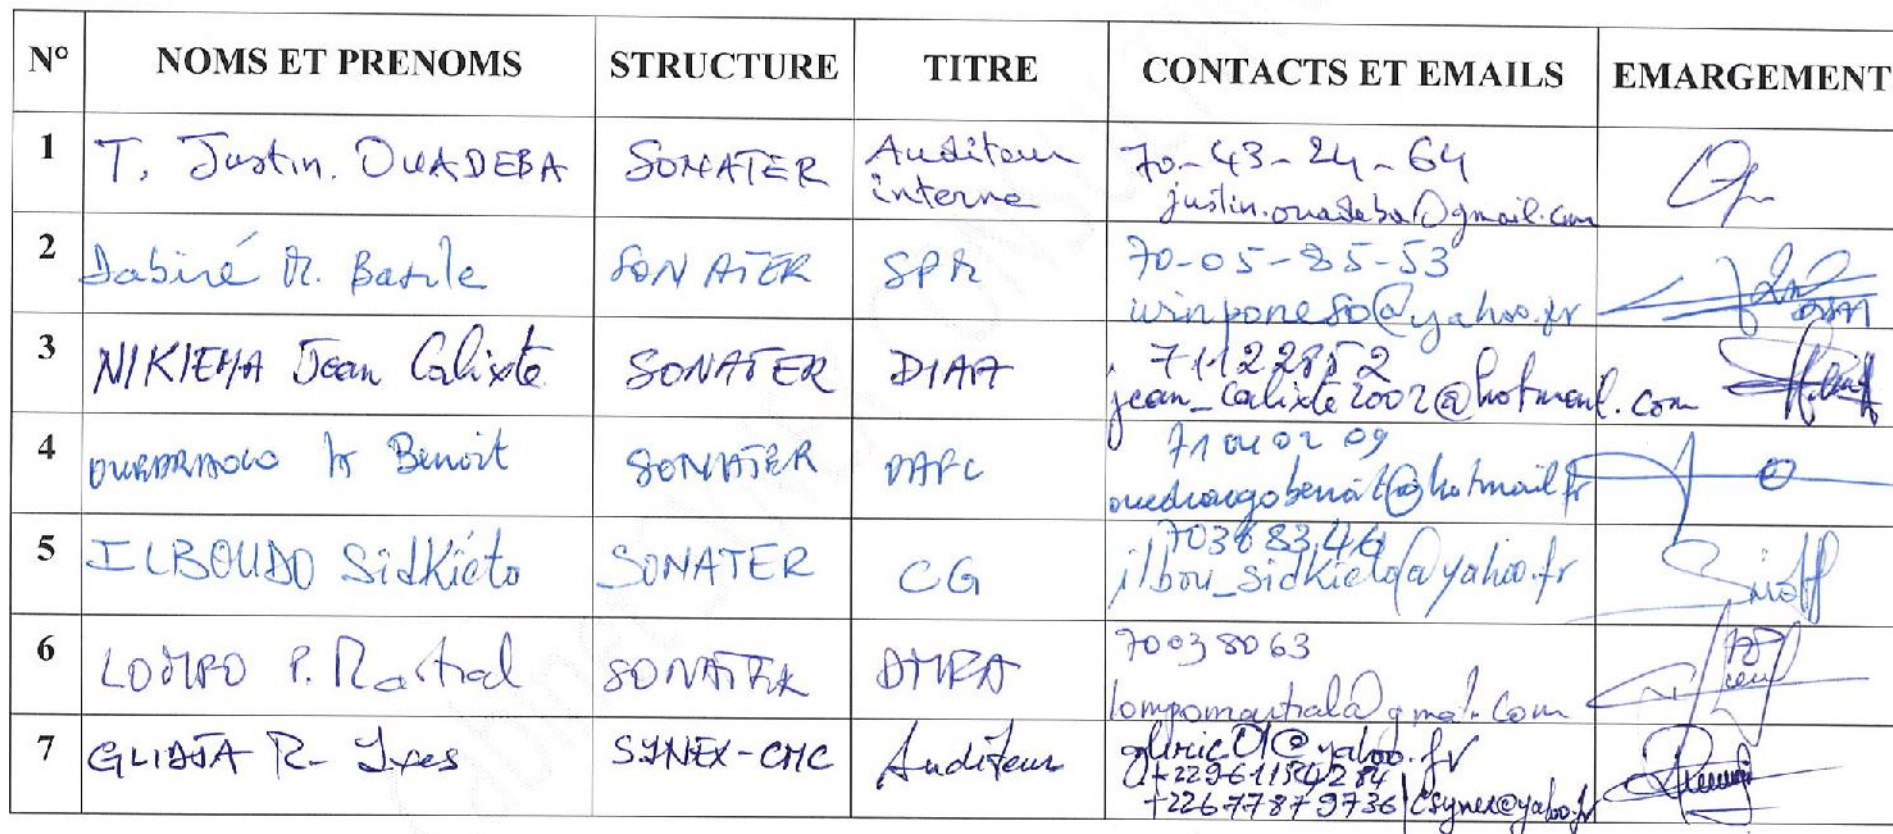 N° NOMS ET PRENOMS STRUCTURE TITRE CONTACTS ET EMAILS EMARGEMENT
1 T. Justin. OUADEBA SONATER Auditeur interne 70-43-24-64
justin.ouadeba@gmail.com
2 Dabiré M. Basile SONATER SPM 70-05-85-53
winpone80@yahoo.fr
3 NIKIEMA Jean Calixte SONATER DIAA 71122852
jean_calixte2002@hotmail.com
4 OUEDRAOGO Benoit SONATER DAFC 71 04 02 09
ouedraogobenoit@hotmail.fr
5 ILBOUDO Sidkiéta SONATER CG
ilbou_sidkieta@yahoo.fr
6 LOMPO P. Martial SONATER DMRA 70038063
lompomartial@gmail.com
7 GLIDJA R. Yves SYNEX-CMC Auditeur gluric01@yahoo.fr
+22961154284
+22677879736 / csynex@yahoo.fr